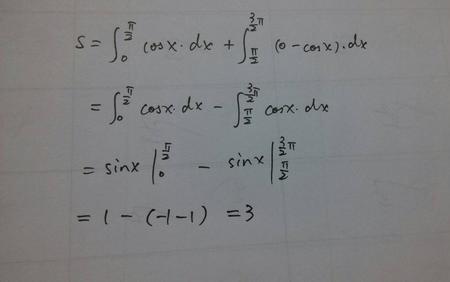 S = ∫₀^{π/2} cosx·dx + ∫_{π/2}^{3/2π} (0-cosx)·dx
= ∫₀^{π/2} cosx·dx - ∫_{π/2}^{3/2π} cosx·dx
= sinx |₀^{π/2} - sinx |_{π/2}^{3/2π}
= 1 - (-1-1) = 3